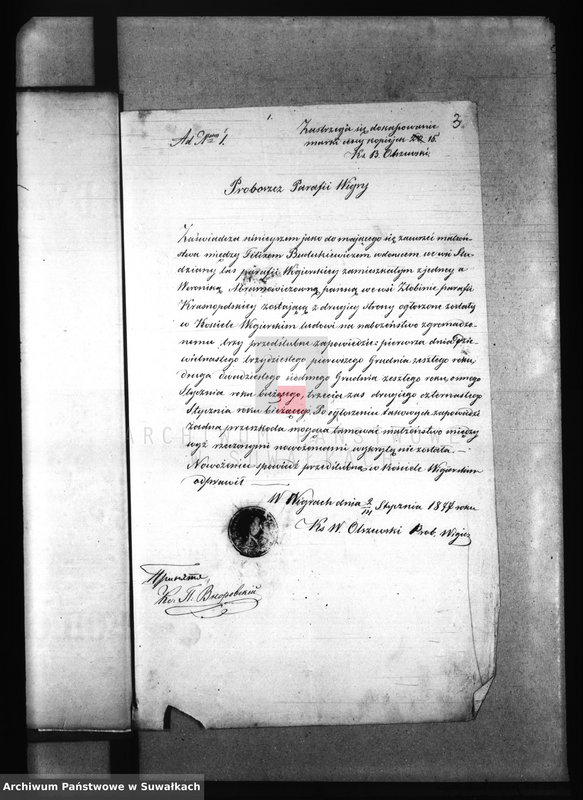 3
Ad Nrum 1.
Zastrzega się dokasowanie
marki ceny kopiejek 15.
Ks B. Olszewski.
Proboszcz Parafii Wigry
Zaświadcza niniejszem jako do mającego się zawrzeć małżeń-
stwa między Felixem Budukiewiczem wdowcem we wsi Stu-
dziany las parafii Wigierskiej zamieszkałym z jednej a
Weroniką Abramowiczówną panną we wsi Żłobinie parafii
Krasnopolskiej zostającą z drugiej strony ogłoszone zostały
w Kościele Wigierskim ludowi na nabożeństwo zgromadzo-
nemu trzy przedślubne zapowiedzie: pierwsza dnia dzie-
więtnastego trzydziestego pierwszego Grudnia zeszłego roku,
druga dwudziestego siódmego Grudnia zeszłego roku, ósmego
Stycznia roku bieżącego, trzecia zaś drugiego czternastego
Stycznia roku bieżącego. Po ogłoszeniu takowych zapowiedzi
żadna przeszkoda mogąca tamować małżeństwo między
wyż rzeczonymi nowożeńcami wykrytą nie została.—
Nowożeniec spowiedź przedślubną w Kościele Wigierskim
odprawił
W Wigrach dnia 2/14 Stycznia 1877 roku
Ks W. Olszewski Prob. Wigier
Приняте,
Кс. П.
ARCHIWUM PAŃSTWOWE
SUWAŁKI
Archiwum Państwowe w Suwałkach